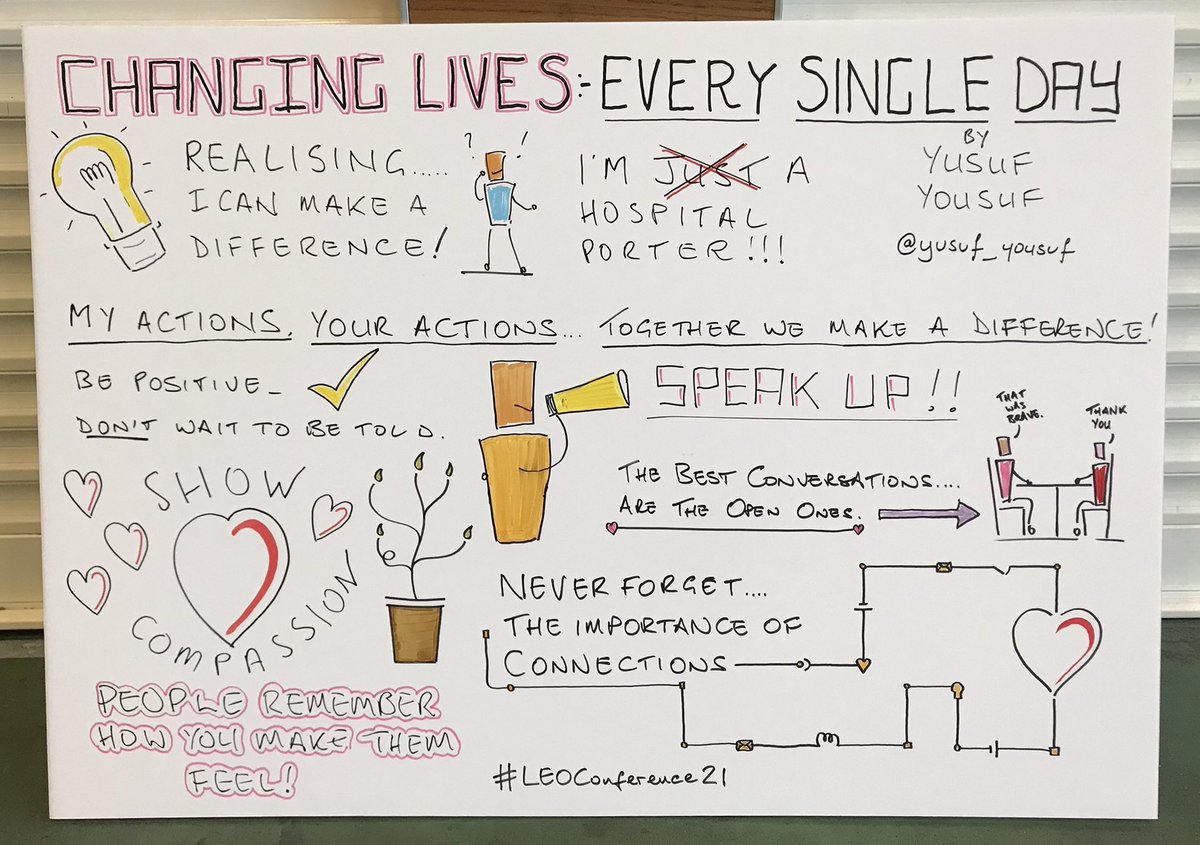 CHANGING LIVES:- EVERY SINGLE DAY
BY
YUSUF
YOUSUF
@yusuf_yousuf
REALISING.....
I CAN MAKE A
DIFFERENCE!
? !
I'M JUST A
HOSPITAL
PORTER!!!
MY ACTIONS, YOUR ACTIONS... TOGETHER WE MAKE A DIFFERENCE!
BE POSITIVE_
DON'T WAIT TO BE TOLD.
SPEAK UP!!
THE BEST CONVERSATIONS....
ARE THE OPEN ONES.
THAT
WAS
BRAVE.
THANK
YOU
SHOW
COMPASSION
PEOPLE REMEMBER
HOW YOU MAKE THEM
FEEL!
NEVER FORGET....
THE IMPORTANCE OF
CONNECTIONS
#LEOConference21